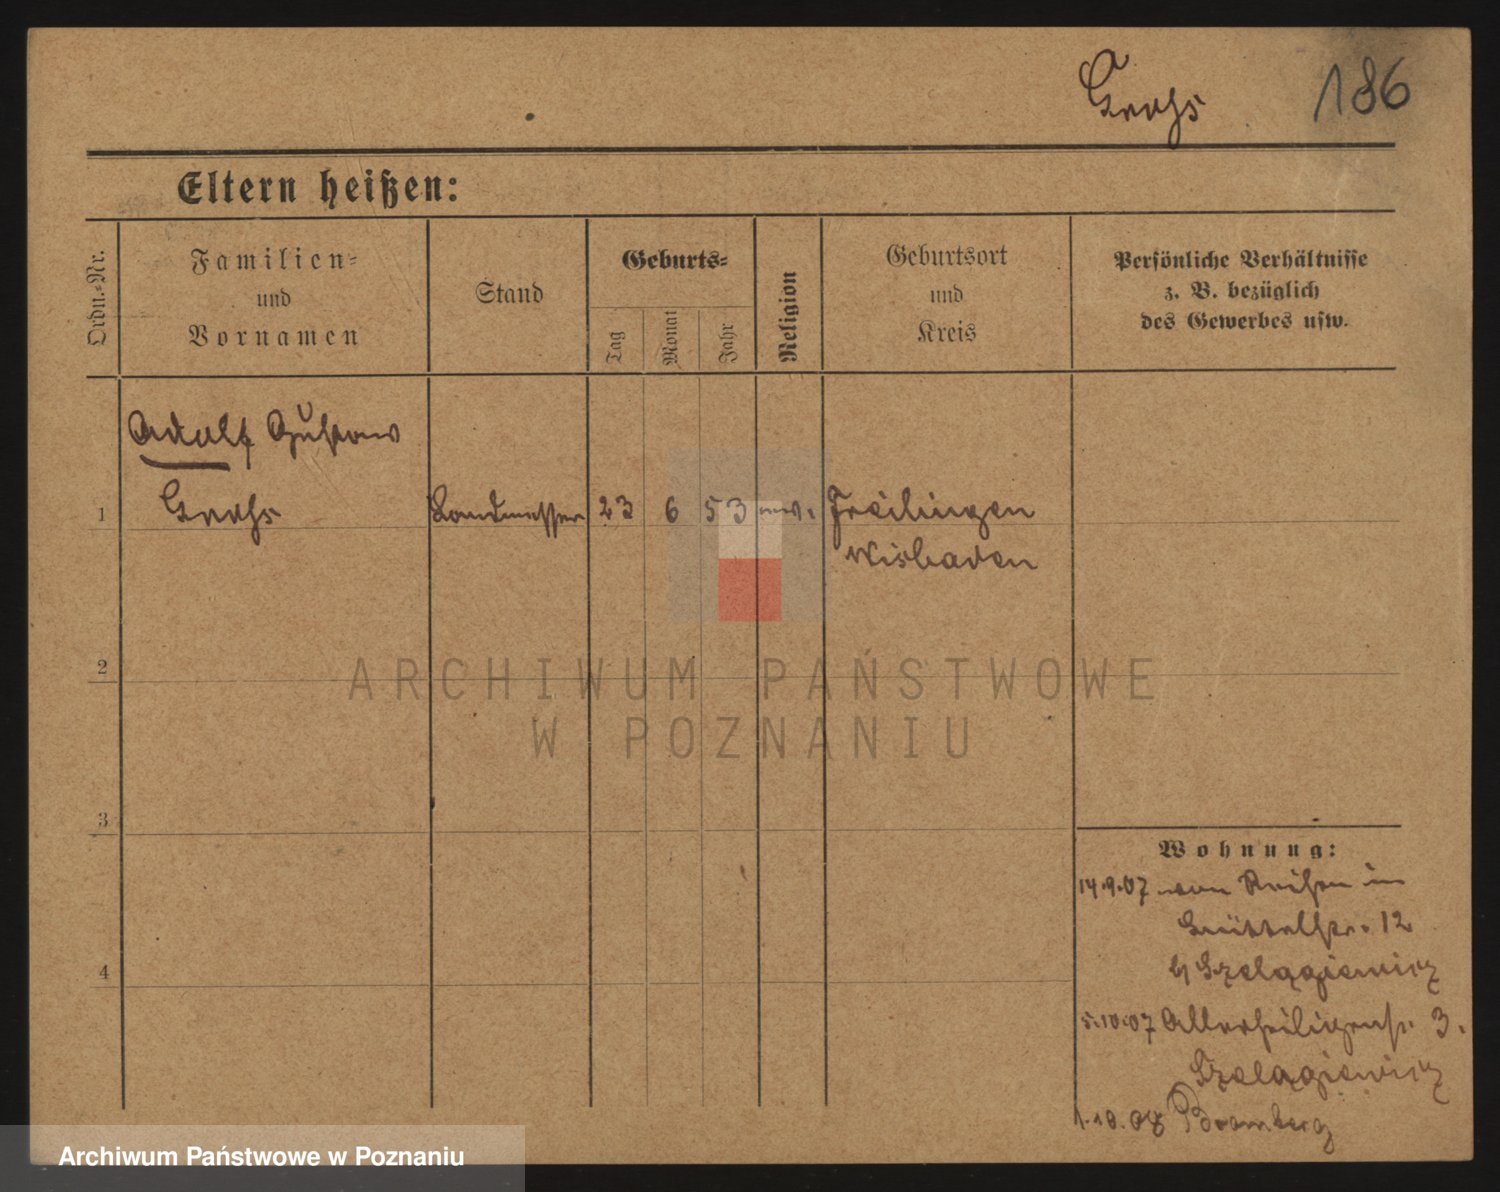 186
Eltern heißen:
Ordn.-Nr.
Familien-
und
Vornamen
Stand
Geburts-
Tag
Monat
Jahr
Religion
Geburtsort
und
Kreis
Persönliche Verhältnisse
z. B. bezüglich
des Gewerbes usw.
Adolf Gustav
1 Landmesser 23 6 53 Freilingen
Wisbaden
2
3
4
ARCHIWUM PAŃSTWOWE
W POZNANIU
Wohnung:
14.9.07 von Reisen in
12
b/ Szelągiewicz
5.10.07 Allerheiligenstr. 3.
Szelągiewicz
1.10.08 Bromberg
Archiwum Państwowe w Poznaniu